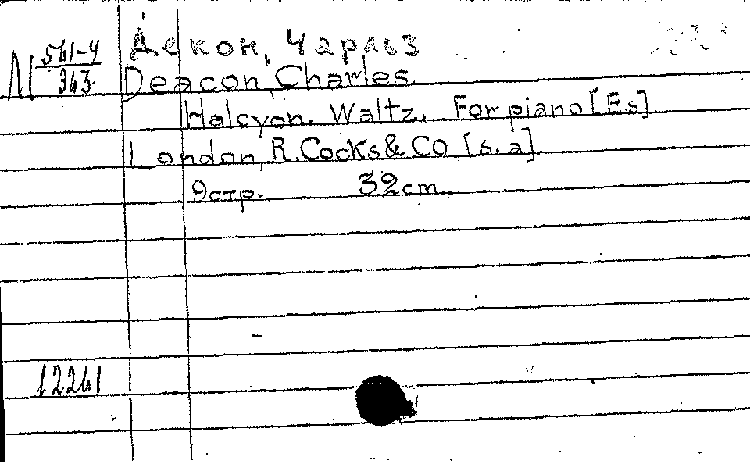 М 561-4
363
Декон, Чарльз
Deacon, Charles.
Halcyon. Waltz. For piano [Es]
London, R. Cocks & Co [s. a]
9 стр. 32 cm.
12261